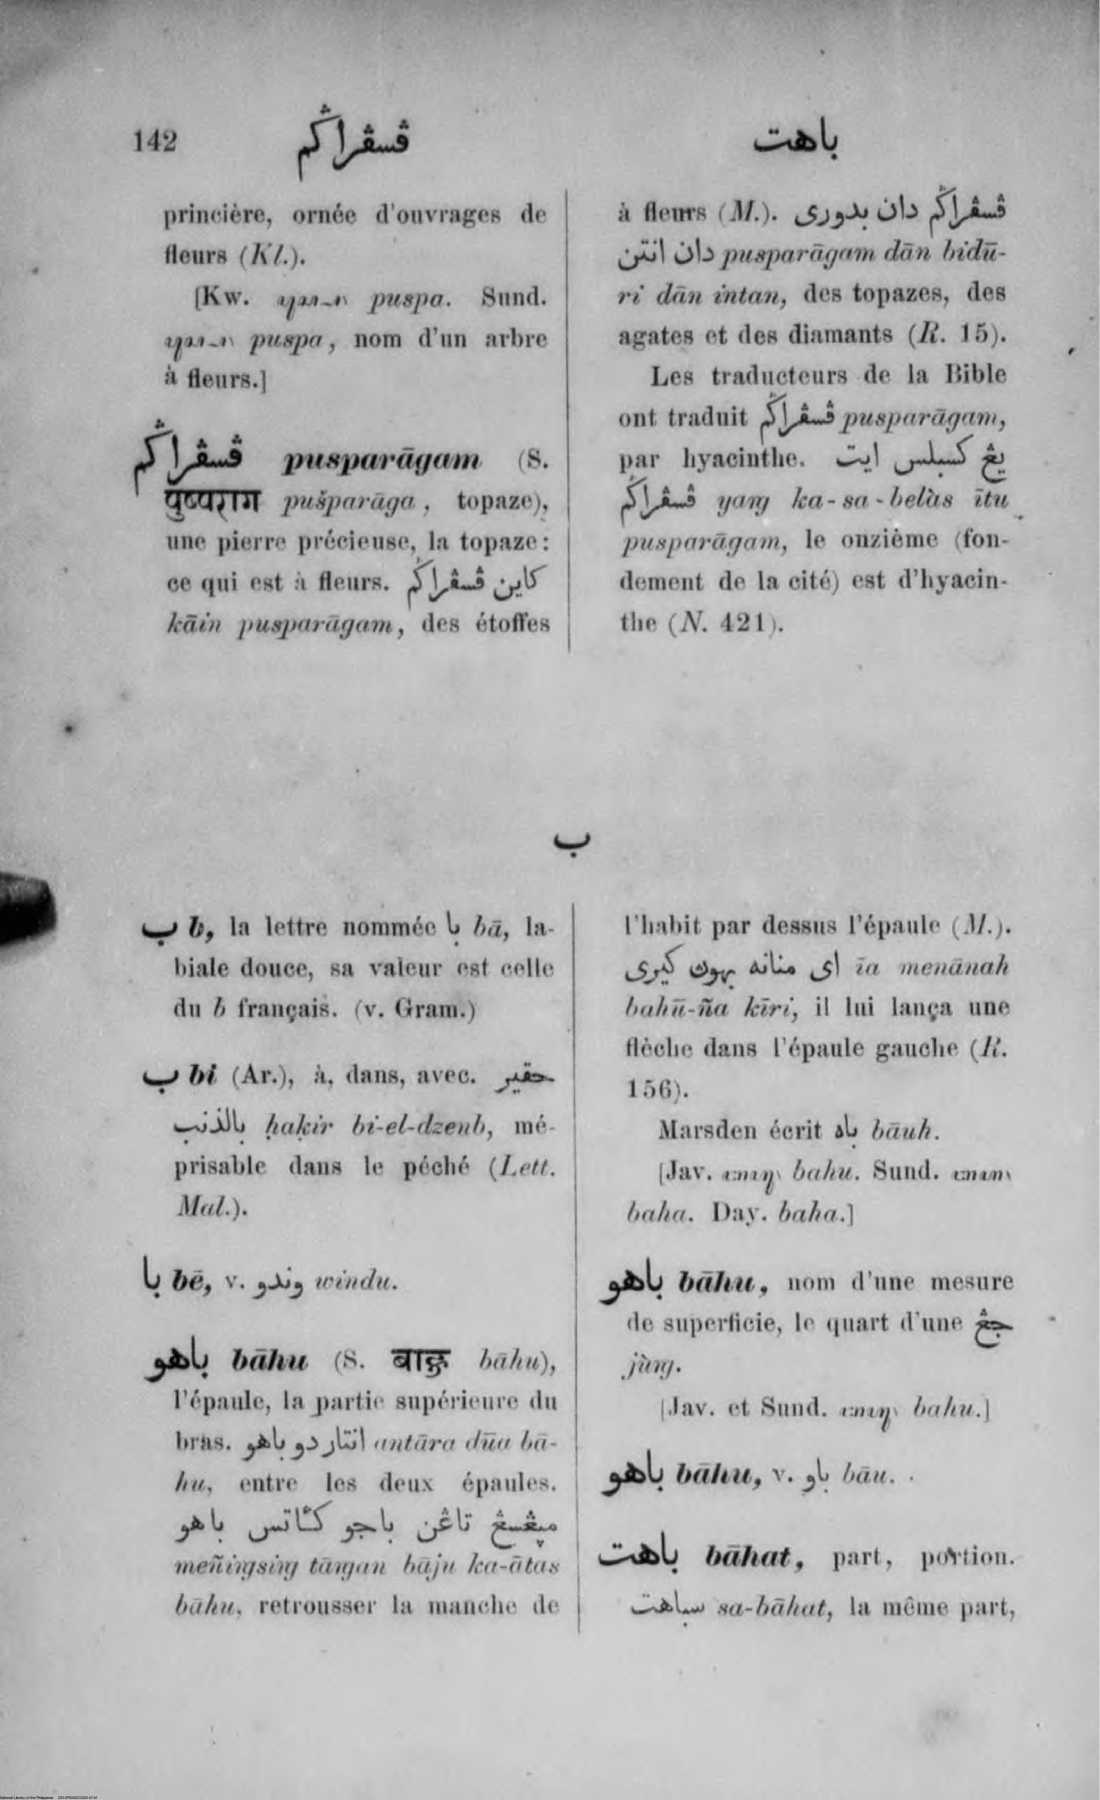 142 ڤسڤراݢم باهت
princière, ornée d'ouvrages de
fleurs (Kl.).
[Kw. puspa. Sund.
puspa, nom d'un arbre
à fleurs.]
ڤسڤراݢم pusparāgam (S.
पुष्पराग pušparāga, topaze),
une pierre précieuse, la topaze:
ce qui est à fleurs. كاين ڤسڤراݢم
kāin pusparāgam, des étoffes
à fleurs (M.). ڤسڤراݢم دان بدوري
دان انتن pusparāgam dān bidū-
ri dān intan, des topazes, des
agates et des diamants (R. 15).
Les traducteurs de la Bible
ont traduit ڤسڤراݢم pusparāgam,
par hyacinthe. يڠ كسبلس ايت
ڤسڤراݢم yaṅg ka-sa-belàs ītu
pusparāgam, le onzième (fon-
dement de la cité) est d'hyacin-
the (N. 421).
ب
ب b, la lettre nommée با bā, la-
biale douce, sa valeur est celle
du b français. (v. Gram.)
ب bi (Ar.), à, dans, avec. حقير
بالذنب ḥaḳir bi-el-dzenb, mé-
prisable dans le péché (Lett.
Mal.).
با bē, v. وندو windu.
باهو bāhu (S. बाहु bāhu),
l'épaule, la partie supérieure du
bras. انتار دو باهو antāra dūa bā-
hu, entre les deux épaules.
باهو كأتس باجو تاڠن
meñiṅgsiṅg tāṅgan bāju ka-ātas
bāhu, retrousser la manche de
l'habit par dessus l'épaule (M.).
اي منانه بهوڽ كيري īa menānah
bahū-ña kīri, il lui lança une
flèche dans l'épaule gauche (R.
156).
Marsden écrit باه bāuh.
[Jav. bahu. Sund.
baha. Day. baha.]
باهو bāhu, nom d'une mesure
de superficie, le quart d'une جڠ
jùṅg.
[Jav. et Sund. bahu.]
باهو bāhu, v. باو bāu.
باهت bāhat, part, portion.
سباهت sa-bāhat, la même part,